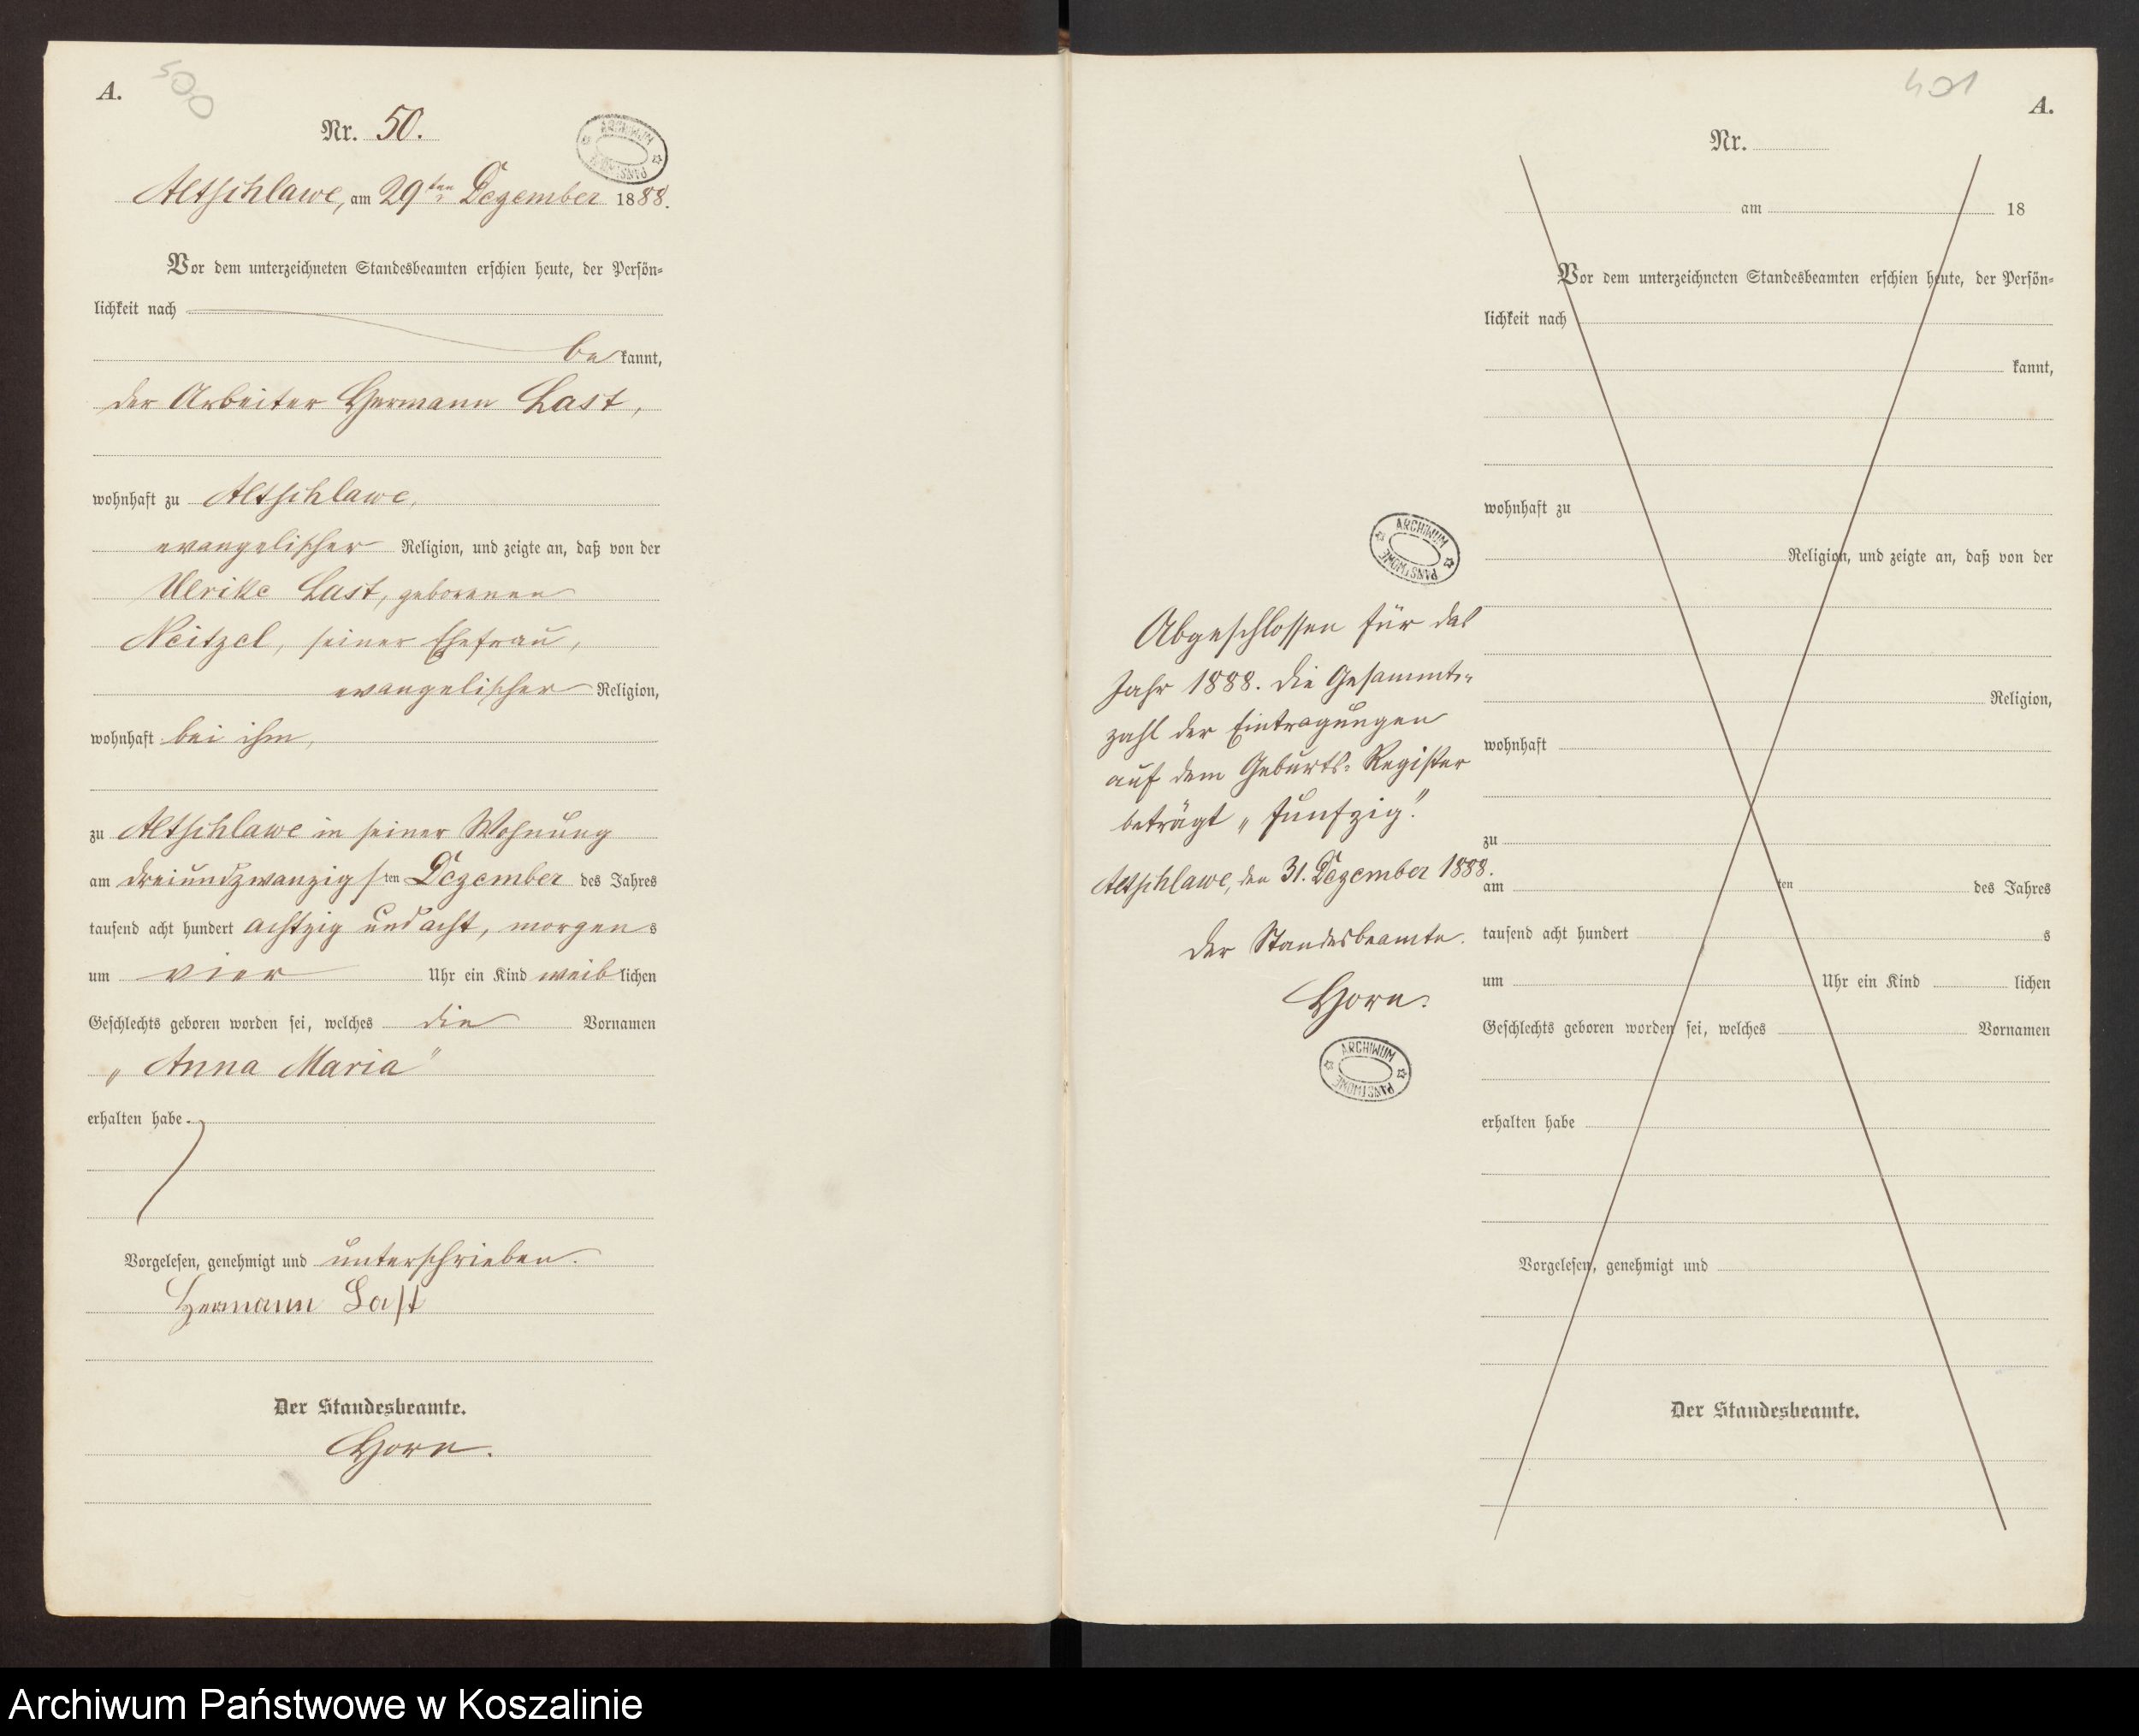 A.
500
Nr. 50.
ARCHIWUM PAŃSTWOWE
Altschlawe, am 29ten Dezember 1888.
Vor dem unterzeichneten Standesbeamten erschien heute, der Persön-
lichkeit nach
bekannt,
der Arbeiter Hermann Last,
wohnhaft zu Altschlawe,
evangelischer Religion, und zeigte an, daß von der
Ulrike Last, geborenen
Neitzel, seiner Ehefrau,
evangelischer Religion,
wohnhaft bei ihm,
zu Altschlawe in seiner Wohnung
am dreiundzwanzigsten Dezember des Jahres
tausend acht hundert achtzig und acht, morgens
um vier Uhr ein Kind weiblichen
Geschlechts geboren worden sei, welches die Vornamen
„Anna Maria“
erhalten habe.
Vorgelesen, genehmigt und unterschrieben.
Hermann Last
Der Standesbeamte.
Horn.
ARCHIWUM PAŃSTWOWE
Abgeschlossen für das
Jahr 1888. Die Gesammt-
zahl der Eintragungen
auf dem Geburts-Register
beträgt „fünfzig“.
Altschlawe, den 31. Dezember 1888.
Der Standesbeamte.
Horn.
ARCHIWUM PAŃSTWOWE
A.
Nr.
am 18
Vor dem unterzeichneten Standesbeamten erschien heute, der Persön-
lichkeit nach
kannt,
wohnhaft zu
Religion, und zeigte an, daß von der
Religion,
wohnhaft
zu
am ten des Jahres
tausend acht hundert s
um Uhr ein Kind lichen
Geschlechts geboren worden sei, welches Vornamen
erhalten habe
Vorgelesen, genehmigt und
Der Standesbeamte.
Archiwum Państwowe w Koszalinie